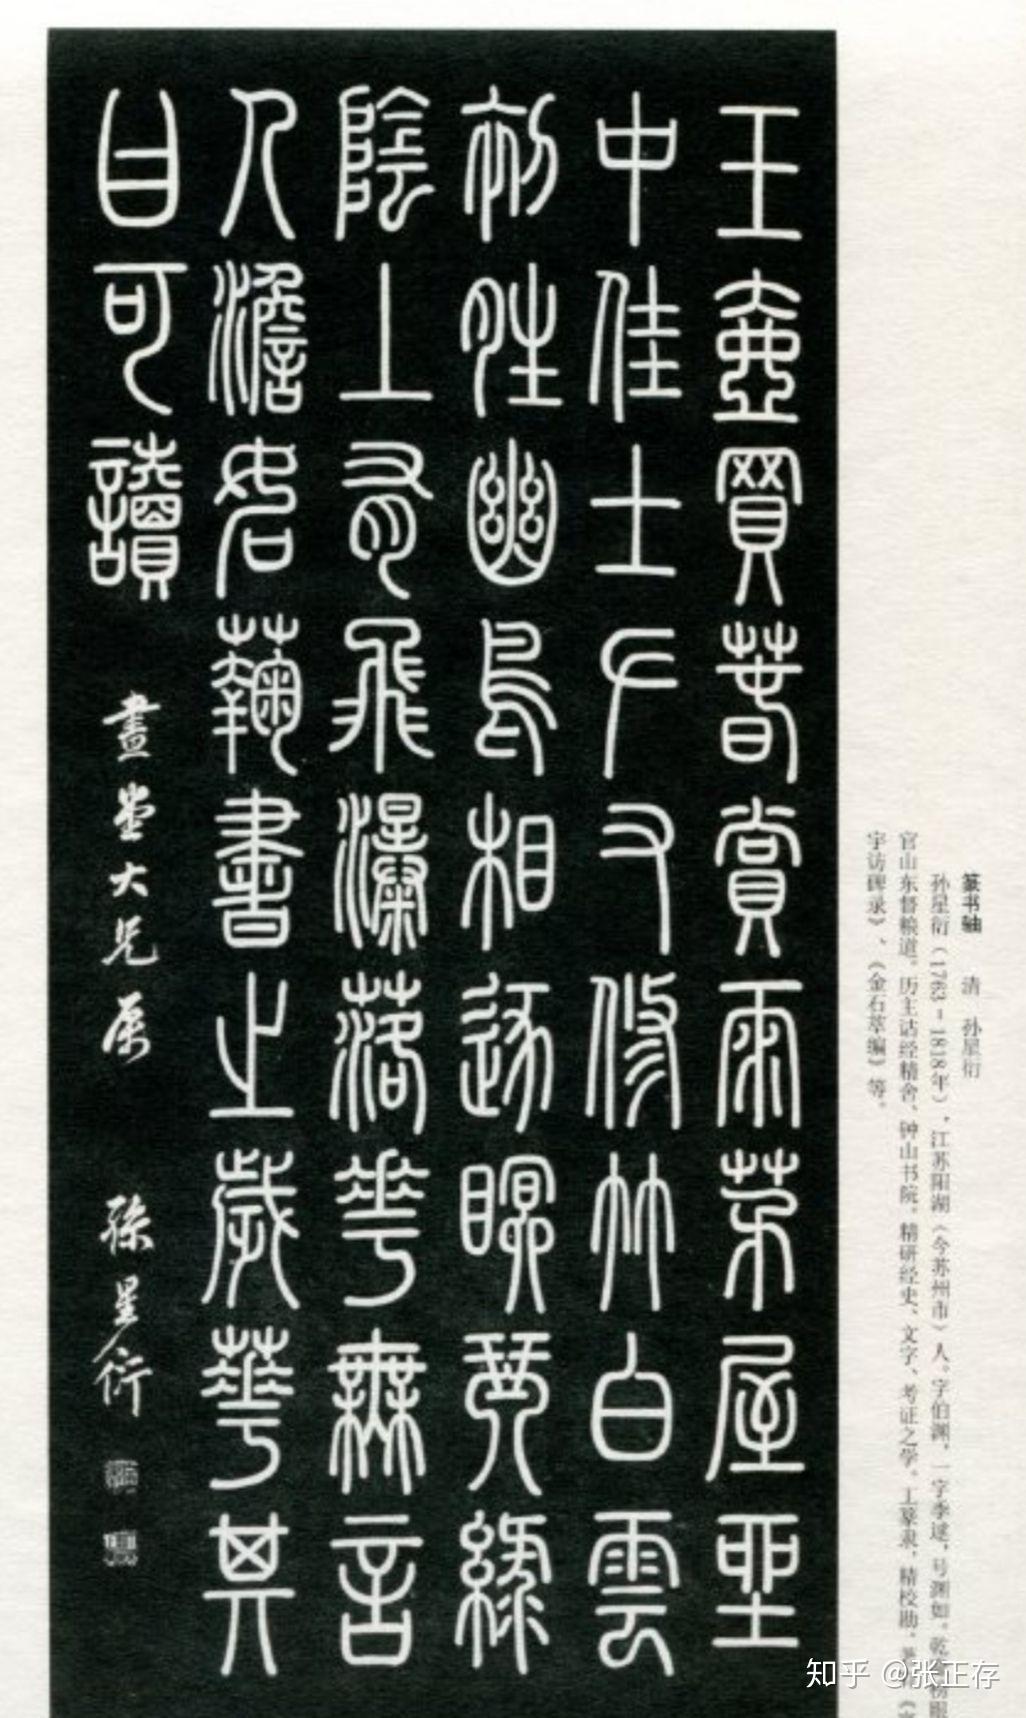 篆书轴 清 孙星衍
孙星衍(1763-1818年),江苏阳湖(今苏州市)人。字伯渊,一字季逑,号渊如。乾
官山东督粮道。历主诂经精舍、钟山书院。精研经史、文字、考证之学。工篆隶,精校勘。
宇访碑录》、《金石萃编》等。
玉壺買萅賞雨茅屋坐
中佳士左右修竹白雲
初姓幽鳥相逐瞑琴綠
陰上有飛瀑落華無言
人澹如蘜書之歲華其
曰可讀
畫堂大兄屬 孫星衍
知乎 @张正存